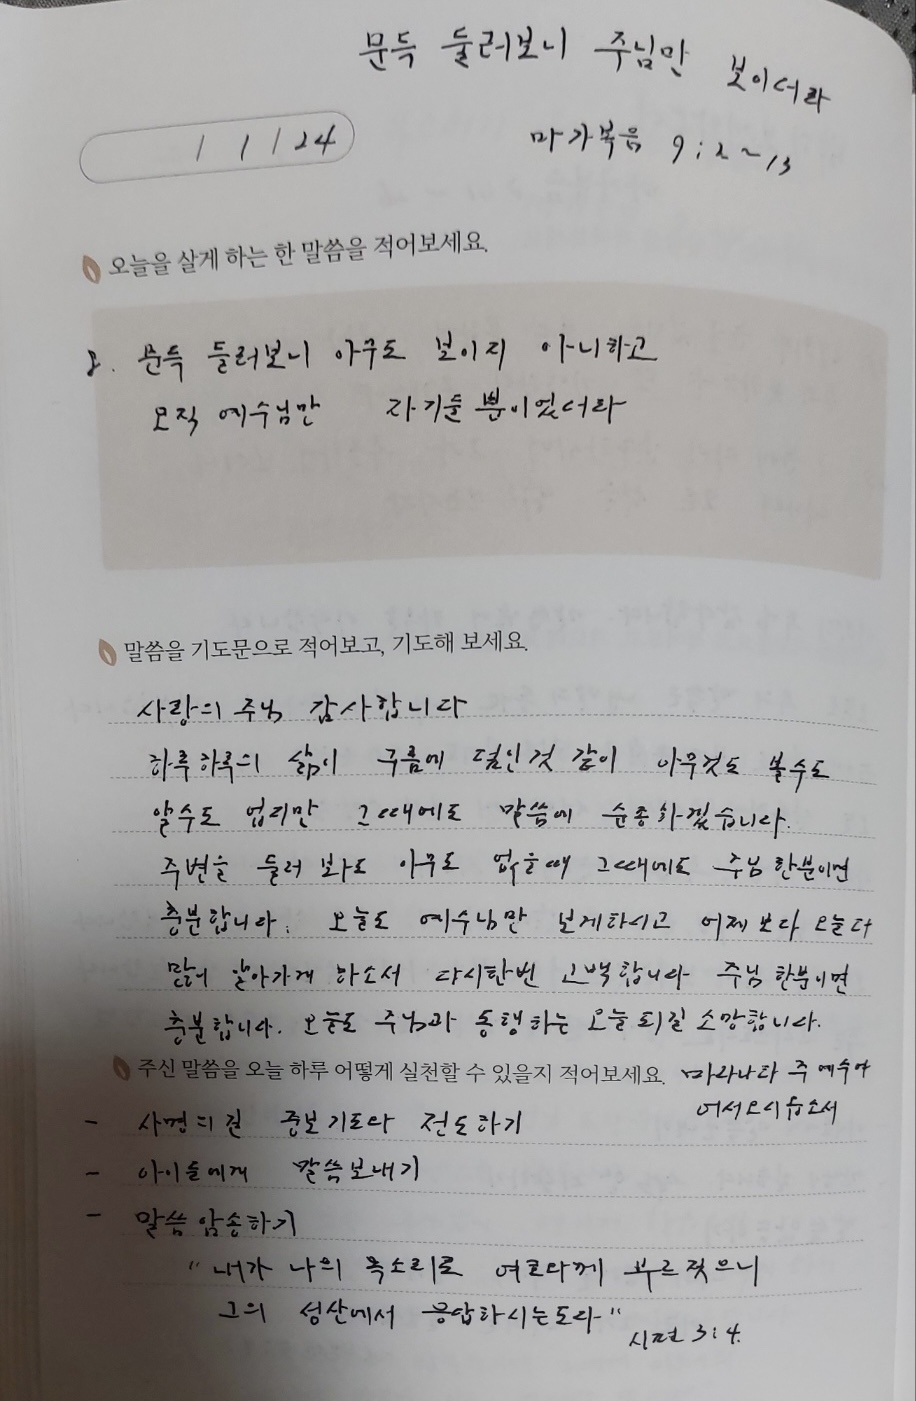 문득 둘러보니 주님만 보이더라
1 / 1 / 24
마가복음 9:2~13
오늘을 살게 하는 한 말씀을 적어보세요.
8. 문득 둘러보니 아무도 보이지 아니하고
오직 예수님만 자기들 뿐이었더라
말씀을 기도문으로 적어보고, 기도해 보세요.
사랑의 주님 감사합니다
하루하루의 삶이 구름에 덮인것 같이 아무것도 볼수도
알수도 없지만 그때에도 말씀에 순종하겠습니다.
주변을 둘러 보아도 아무도 없을때 그때에도 주님 한분이면
충분합니다. 오늘도 예수님만 보게하시고 어제보다 오늘 더
많이 닮아가게 하소서 다시한번 고백합니다 주님 한분이면
충분합니다. 오늘도 주님과 동행하는 오늘 되길 소망합니다.
마라나타 주 예수여
어서오시옵소서
주신 말씀을 오늘 하루 어떻게 실천할 수 있을지 적어보세요.
- 사명의길 중보기도와 전도하기
- 아이들에게 말씀보내기
- 말씀 암송하기
"내가 나의 목소리로 여호와께 부르짖으니
그의 성산에서 응답하시는도다"
시편 3:4.